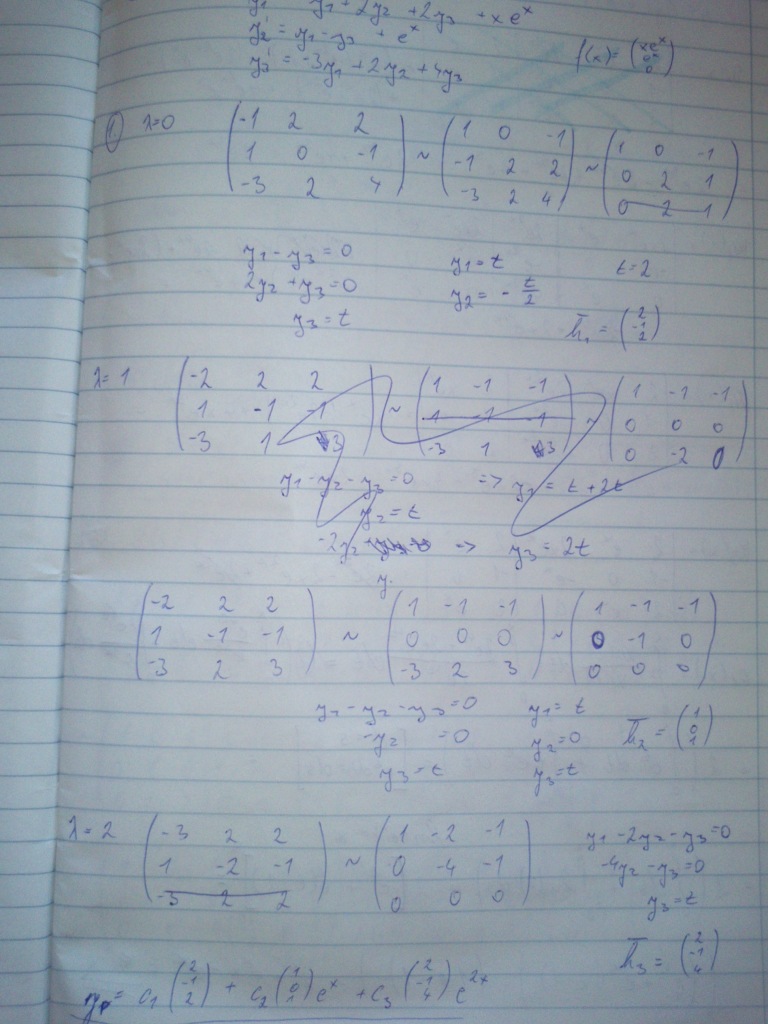 y1' = -y1 + 2y2 + 2y3 + x e^x
y2' = y1 - y3 + e^x
y3' = -3y1 + 2y2 + 4y3
① λ=0
(-1 2 2; 1 0 -1; -3 2 4) ~ (1 0 -1; -1 2 2; -3 2 4) ~ (1 0 -1; 0 2 1; 0 2 1)
y1 - y3 = 0   y1 = t   t = 2
2y2 + y3 = 0   y2 = - t/2
y3 = t   h1 = (2; -1; 2)
λ=1
(-2 2 2; 1 -1 -1; -3 1 3) ~ (1 -1 -1; -3 1 3) ~ (1 -1 -1; 0 0 0; 0 -2 0)
y1 - y2 - y3 = 0 => y1 = t + 2t
y2 = t
=> y3 = 2t
(-2 2 2; 1 -1 -1; -3 2 3) ~ (1 -1 -1; 0 0 0; -3 2 3) ~ (1 -1 -1; 0 -1 0; 0 0 0)
y1 - y2 - y3 = 0   y1 = t
-y2 = 0   y2 = 0   h2 = (1; 0; 1)
y3 = t   y3 = t
λ = 2
(-3 2 2; 1 -2 -1; -3 2 2) ~ (1 -2 -1; 0 -4 -1; 0 0 0)
y1 - 2y2 - y3 = 0
-4y2 - y3 = 0
y3 = t
h3 = (2; -1; 4)
= C1 (2; -1; 2) + C2 (1; 0; 1) e^x + C3 (2; -1; 4) e^2x